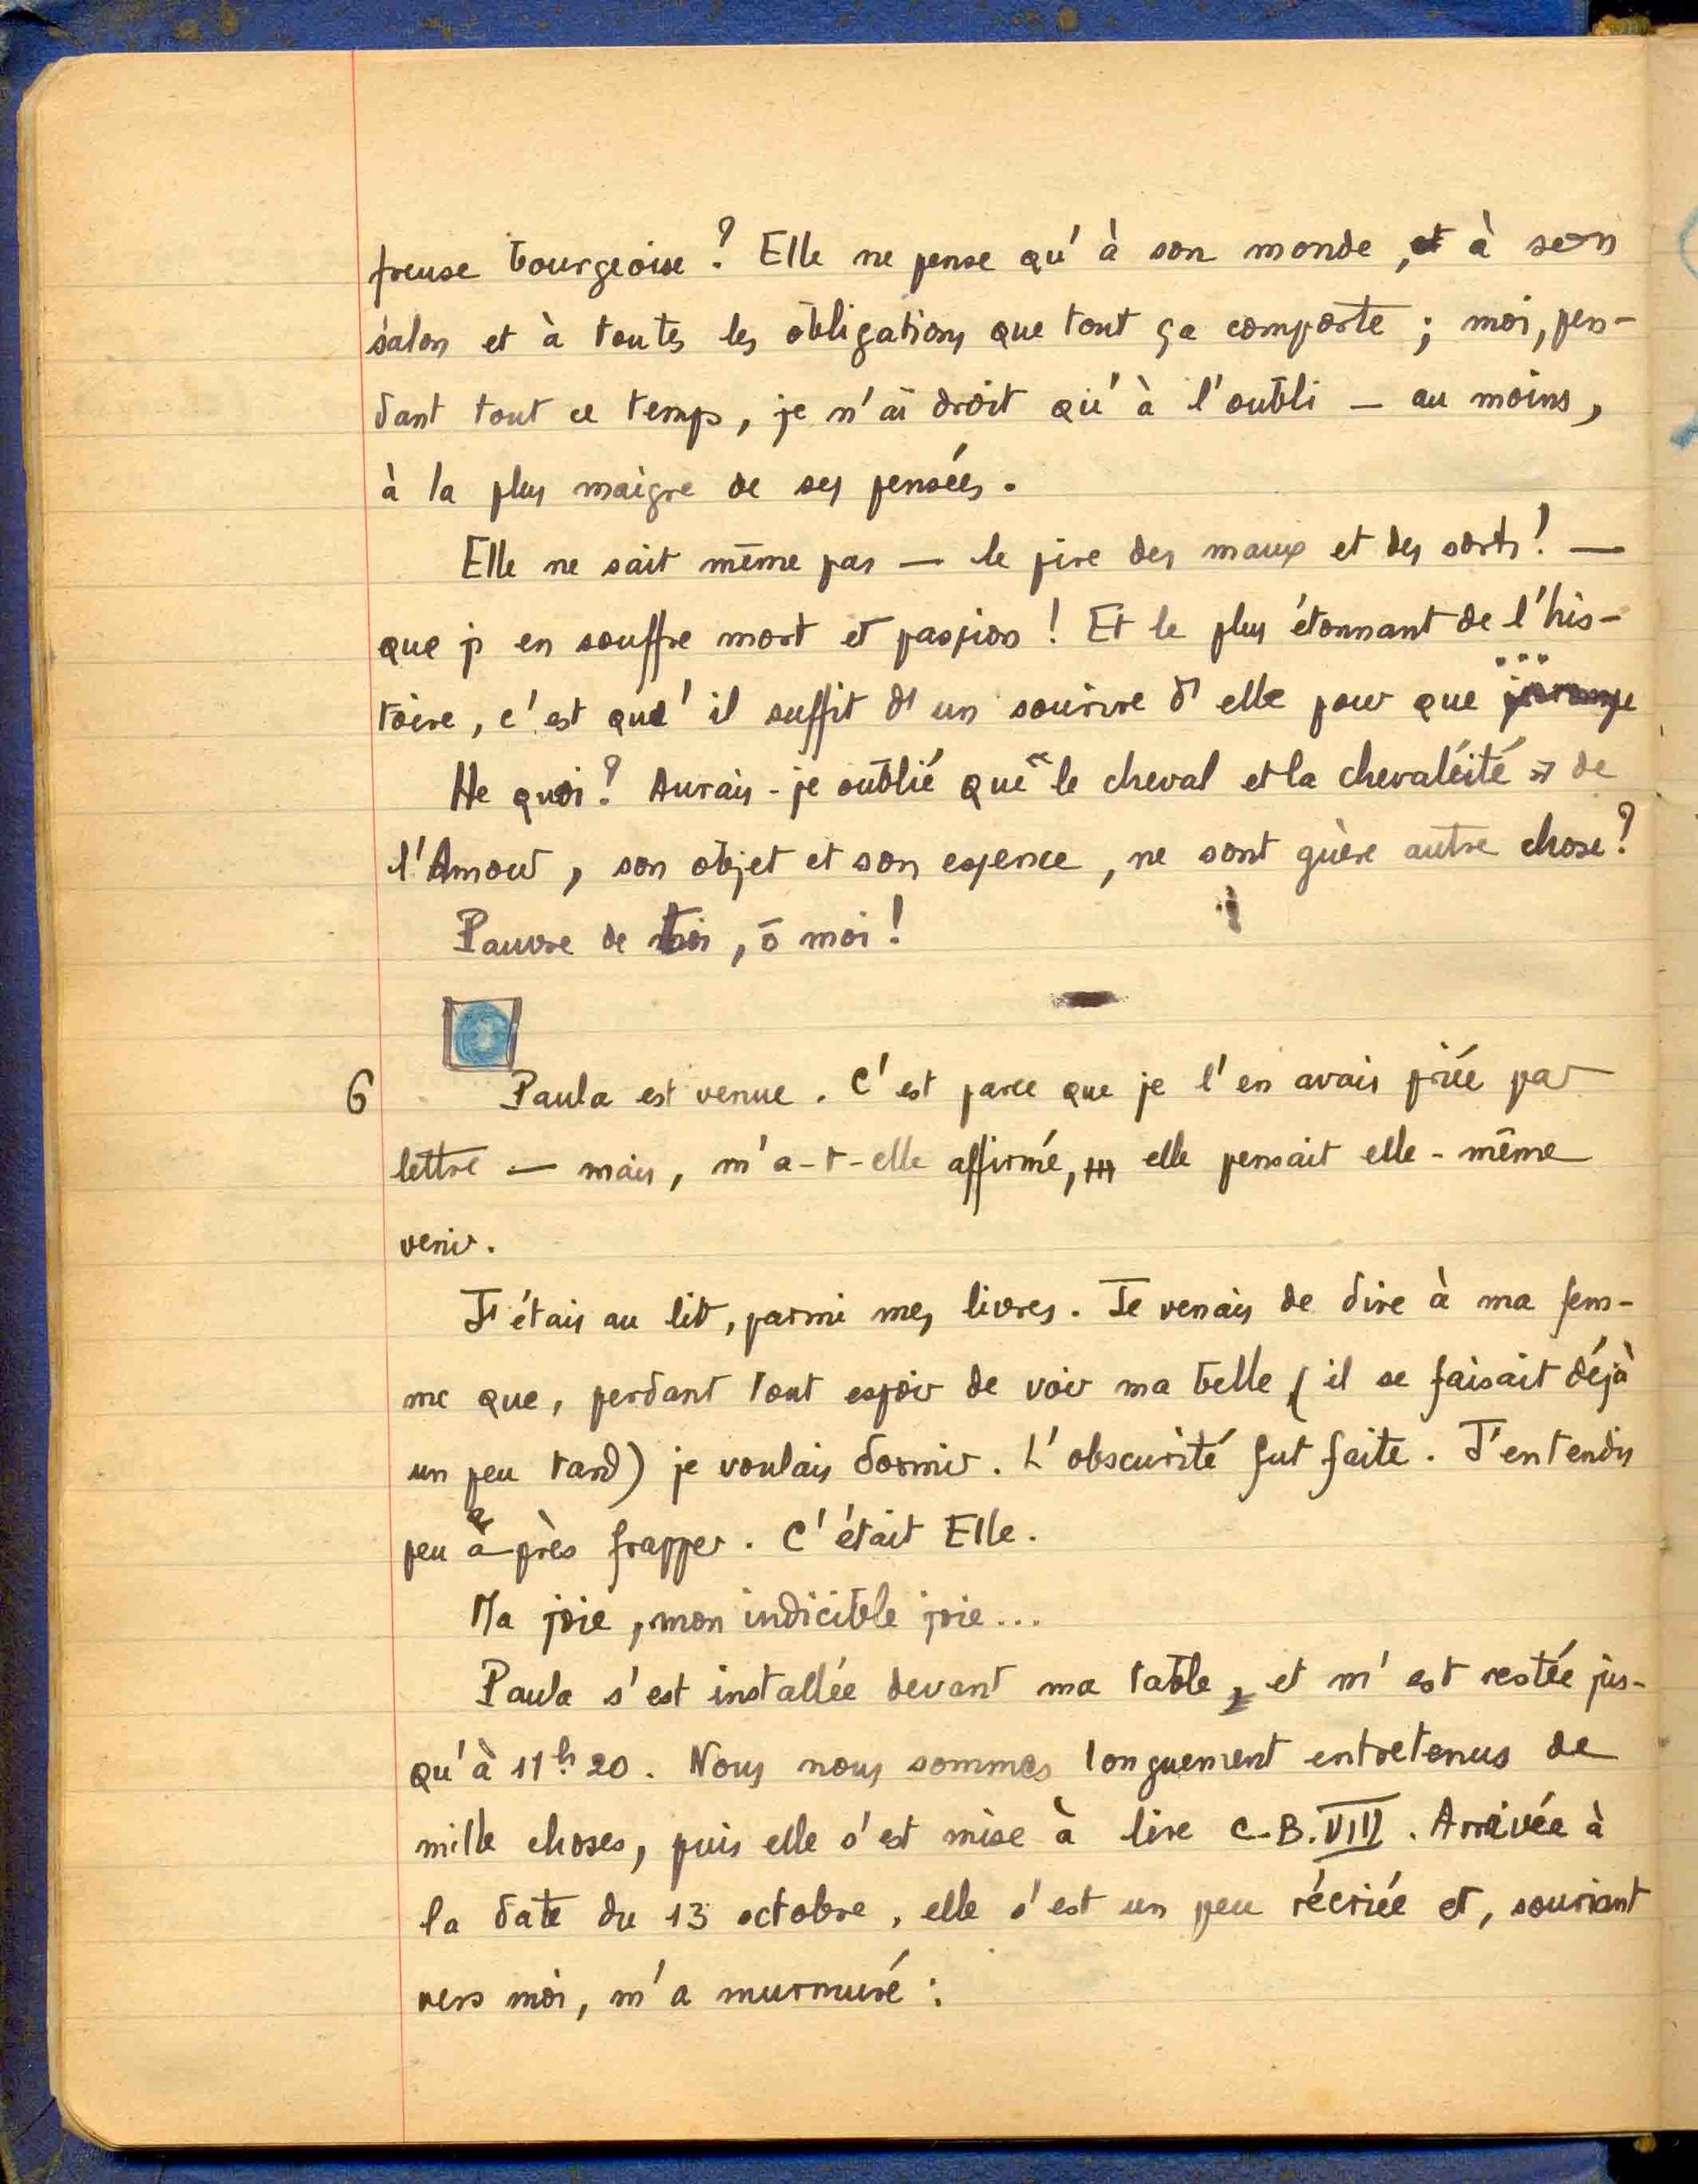 freuse bourgeoise ? Elle ne pense qu'à son monde, à son
salon et à toutes les obligations que tout ça comporte ; moi, pen-
dant tout ce temps, je n'ai droit qu'à l'oubli — au moins,
à la plus maigre de ses pensées.
Elle ne sait même pas — le pire des maux et des sorts ! —
que j'en souffre mort et passion ! Et le plus étonnant de l'his-
toire, c'est qu'il suffit d'un sourire d'elle pour que ...
He quoi ? Aurais-je oublié que « le cheval et la chevaléité » de
l'Amour, son objet et son essence, ne sont guère autre chose ?
Pauvre de toi, ô moi !
6 Paula est venue. C'est parce que je l'en avais priée par
lettre — mais, m'a-t-elle affirmé, elle pensait elle-même
venir.
J'étais au lit, parmi mes livres. Je venais de dire à ma fem-
me que, perdant tout espoir de voir ma belle (il se faisait déjà
un peu tard) je voulais dormir. L'obscurité fut faite. J'entendis
peu après frapper. C'était Elle.
Ma joie, mon indicible joie...
Paula s'est installée devant ma table, et m'est restée jus-
qu'à 11h20. Nous nous sommes longuement entretenus de
mille choses, puis elle s'est mise à lire C-B. VIII. Arrivée à
la date du 13 octobre, elle s'est un peu récriée et, souriant
vers moi, m'a murmuré :